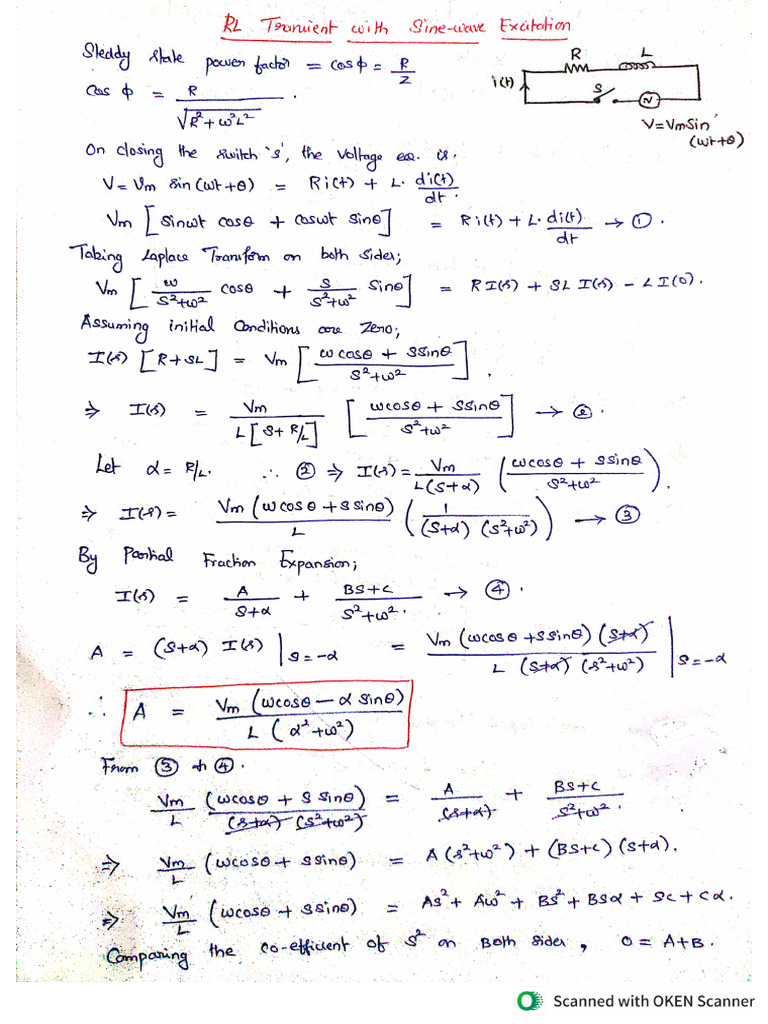 RL Transient with Sine-wave Excitation
Steddy state power factor = cos ϕ = R/Z
R L
i(t) S
V=Vm Sin
(wt+θ)
cos ϕ = R/√(R²+ω²L²) .
On closing the switch 's', the voltage eq. is.
V = Vm sin (wt+θ) = Ri(t) + L. di(t)/dt.
Vm [sinwt cosθ + coswt sinθ] = Ri(t) + L. di(t)/dt → ①.
Taking Laplace Transform on both sides;
Vm [ω/(S²+ω²) cosθ + S/(S²+ω²) sinθ] = R I(s) + SL I(s) - L I(0).
Assuming initial conditions are zero;
I(s) [R+SL] = Vm [(ωcosθ + Ssinθ)/(S²+ω²)] .
⇒ I(s) = Vm/(L[S+R/L]) [(ωcosθ + Ssinθ)/(S²+ω²)] → ②.
Let α = R/L. ∴ ② ⇒ I(s) = Vm/(L(S+α)) ((ωcosθ + Ssinθ)/(S²+ω²)).
⇒ I(s) = Vm (ωcosθ + Ssinθ)/L (1/((S+α) (S²+ω²))) → ③
By Partial Fraction Expansion;
I(s) = A/(S+α) + (BS+C)/(S²+ω²) . → ④.
A = (S+α) I(s) |S=-α = Vm (ωcosθ + Ssinθ) (S+α)/(L (S+α) (S²+ω²)) |S=-α
∴ A = Vm (ωcosθ - α sinθ)/(L (α²+ω²))
From ③ & ④.
Vm/L (ωcosθ + S sinθ)/((S+α) (S²+ω²)) = A/(S+α) + (BS+C)/(S²+ω²) .
⇒ Vm/L (ωcosθ + Ssinθ) = A(S²+ω²) + (BS+C) (S+α).
⇒ Vm/L (ωcosθ + Ssinθ) = AS² + Aω² + BS² + BSα + SC + Cα.
Comparing the co-efficient of S² on Both sides, 0 = A+B.
Scanned with OKEN Scanner